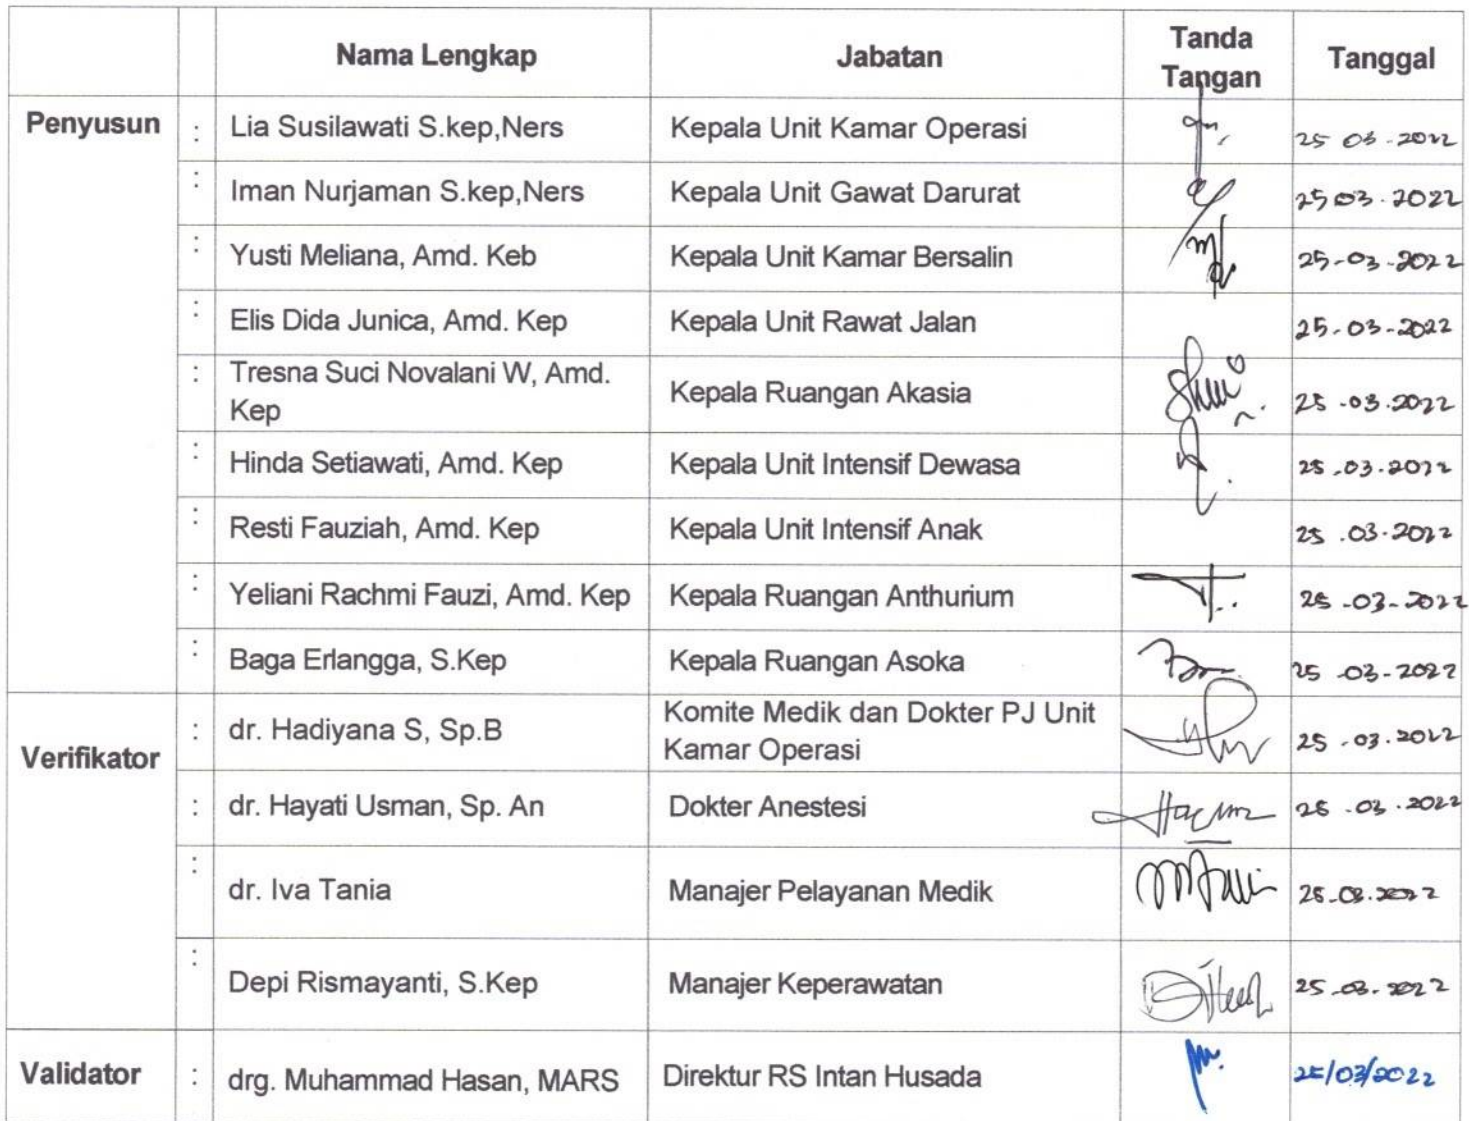 Nama Lengkap Jabatan Tanda Tangan Tanggal
Penyusun : Lia Susilawati S.kep,Ners Kepala Unit Kamar Operasi 25 03 - 2022
: Iman Nurjaman S.kep,Ners Kepala Unit Gawat Darurat 25 03 . 2022
: Yusti Meliana, Amd. Keb Kepala Unit Kamar Bersalin 25-03-2022
: Elis Dida Junica, Amd. Kep Kepala Unit Rawat Jalan 25-03-2022
: Tresna Suci Novalani W, Amd.
Kep Kepala Ruangan Akasia 25 -03.2022
: Hinda Setiawati, Amd. Kep Kepala Unit Intensif Dewasa 25 .03.2022
: Resti Fauziah, Amd. Kep Kepala Unit Intensif Anak 25 .03.2022
: Yeliani Rachmi Fauzi, Amd. Kep Kepala Ruangan Anthurium 25 -03-2022
: Baga Erlangga, S.Kep Kepala Ruangan Asoka 25 -03-2022
Verifikator : dr. Hadiyana S, Sp.B Komite Medik dan Dokter PJ Unit
Kamar Operasi 25 .03.2022
: dr. Hayati Usman, Sp. An Dokter Anestesi 25 .03.2022
: dr. Iva Tania Manajer Pelayanan Medik 25-03.2022
: Depi Rismayanti, S.Kep Manajer Keperawatan 25-03.2022
Validator : drg. Muhammad Hasan, MARS Direktur RS Intan Husada 25/03/2022